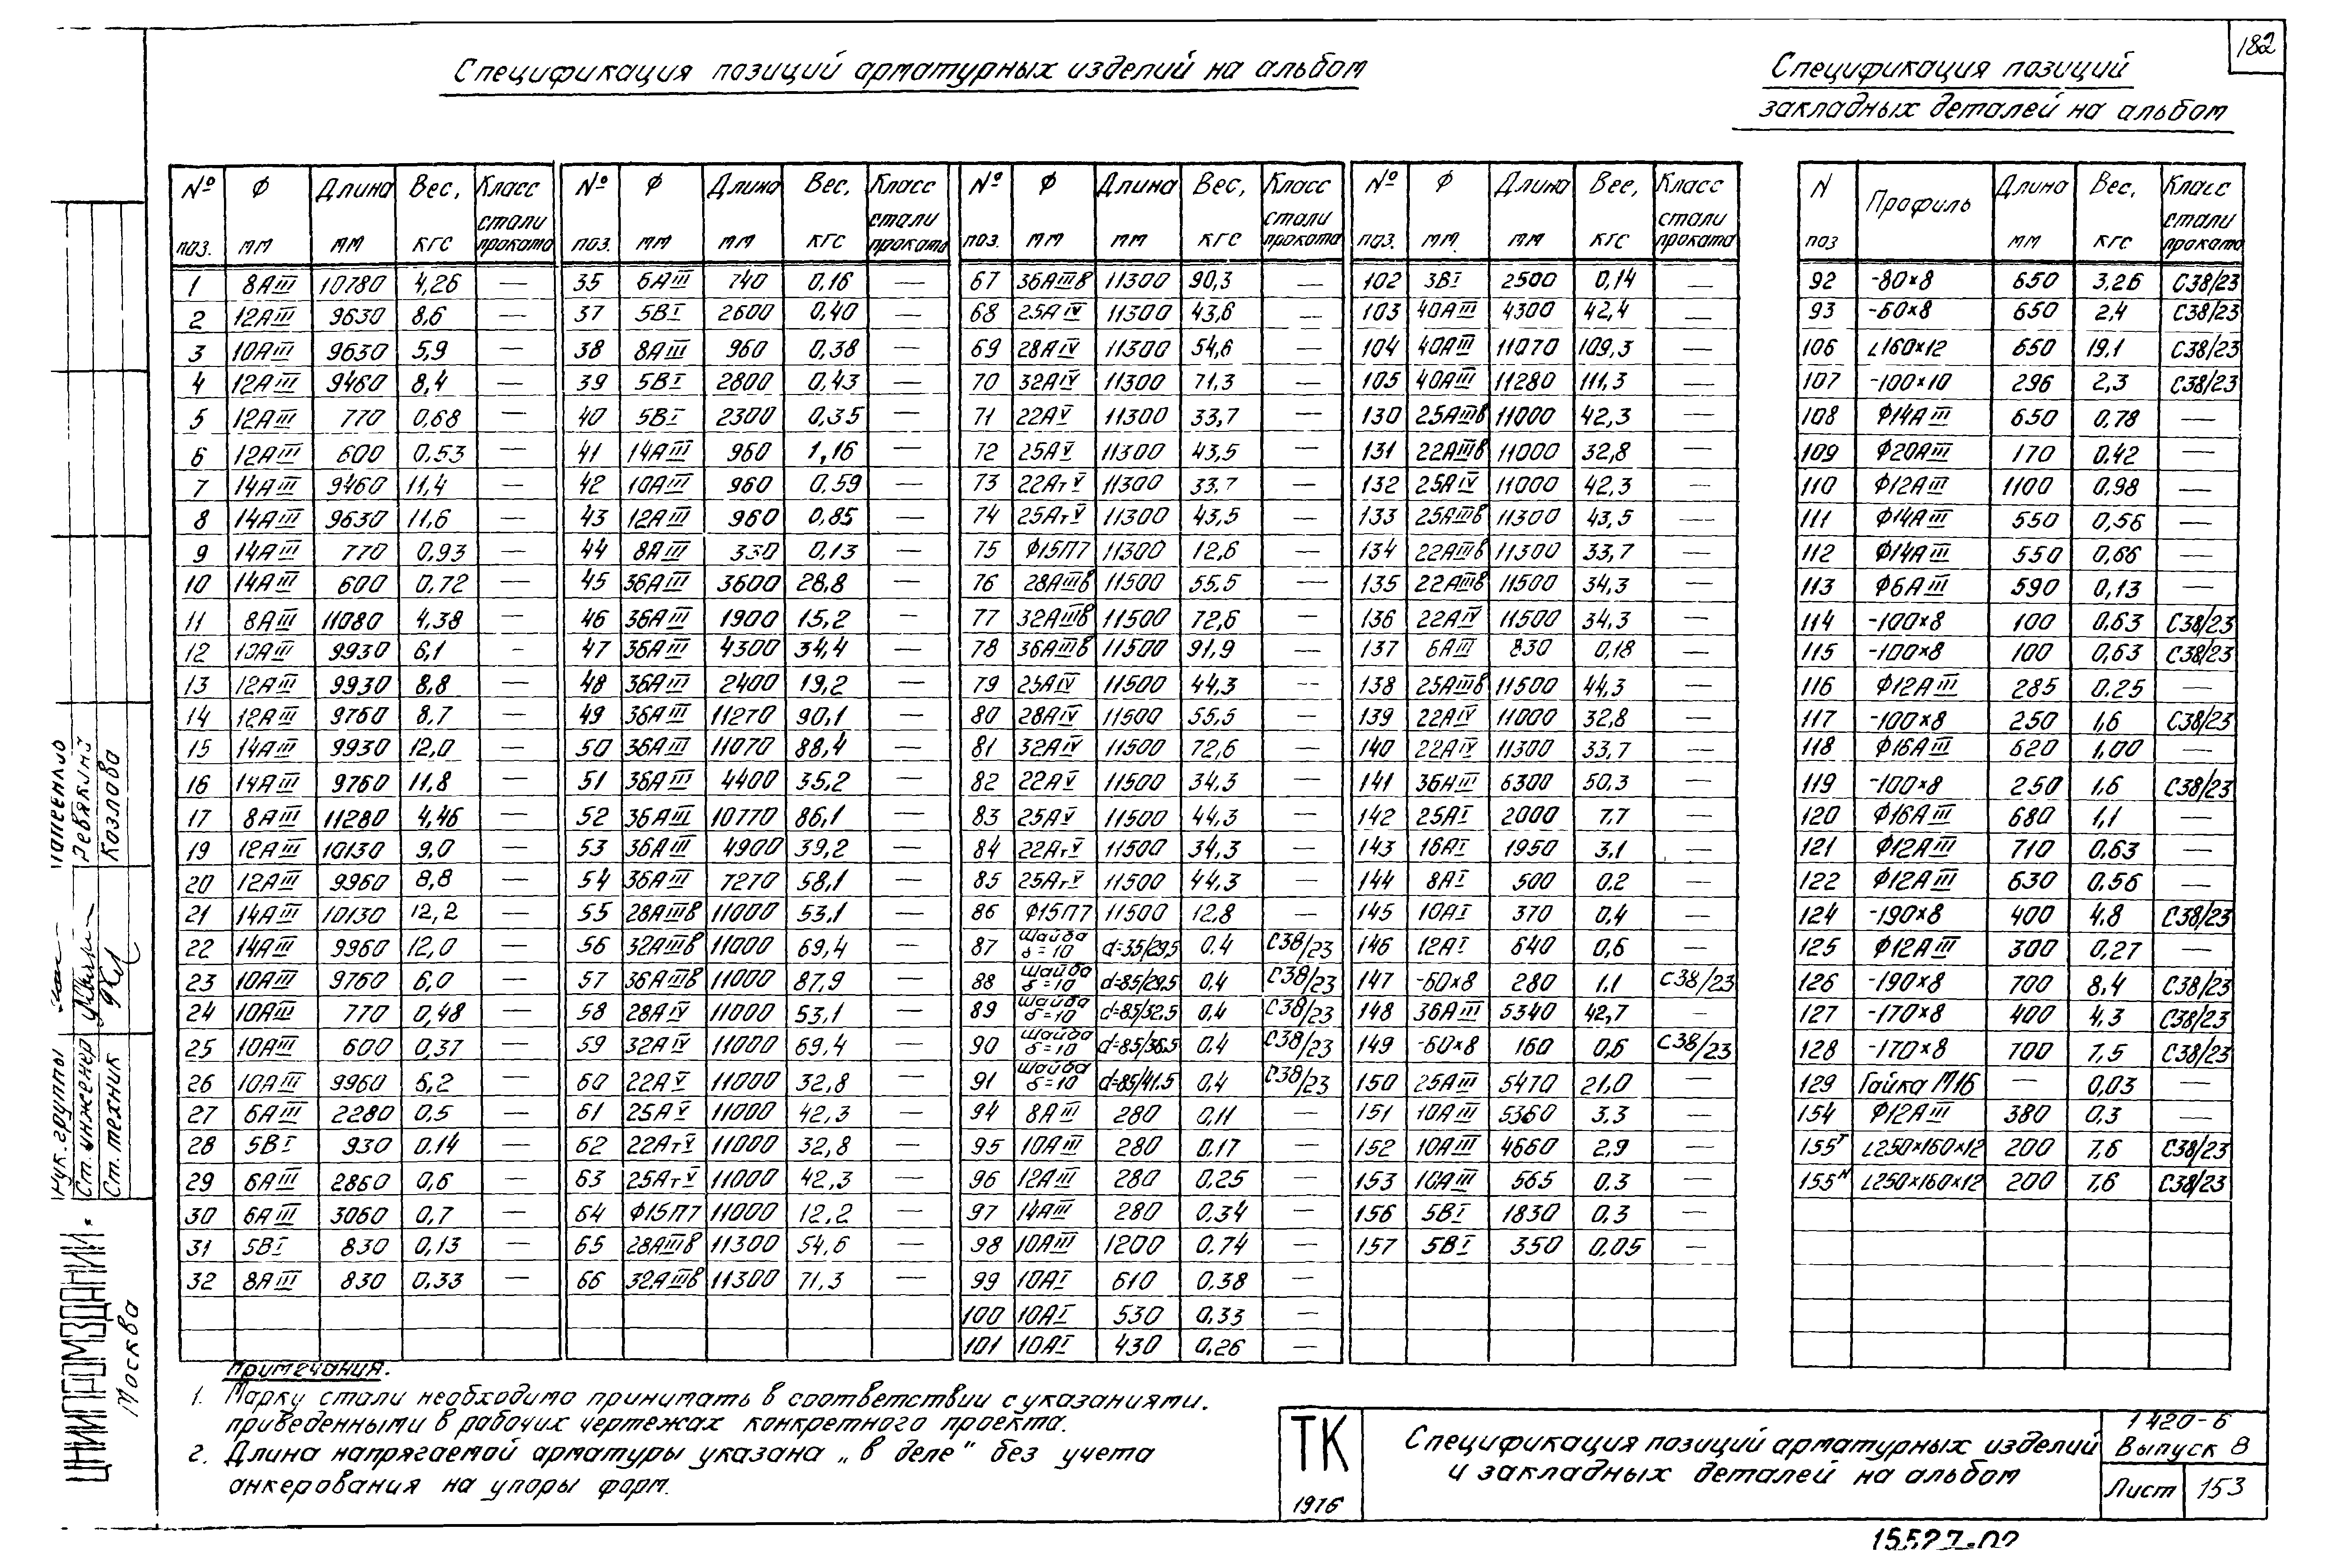 182
Спецификация позиций арматурных изделий на альбом
Спецификация позиций
закладных деталей на альбом
№ поз. Ф мм Длина мм Вес, кгс Класс стали проката
1 8АIII 10780 4,26 —
2 12АIII 9630 8,6 —
3 10АIII 9630 5,9 —
4 12АIII 9460 8,4 —
5 12АIII 770 0,68 —
6 12АIII 600 0,53 —
7 14АIII 9460 11,4 —
8 14АIII 9630 11,6 —
9 14АIII 770 0,93 —
10 14АIII 600 0,72 —
11 8АIII 11080 4,38 —
12 10АIII 9930 6,1 -
13 12АIII 9930 8,8 —
14 12АIII 9760 8,7 —
15 14АIII 9930 12,0 —
16 14АIII 9760 11,8 —
17 8АIII 11280 4,46 —
19 12АIII 10130 9,0 —
20 12АIII 9960 8,8 —
21 14АIII 10130 12,2 —
22 14АIII 9960 12,0 —
23 10АIII 9760 6,0 —
24 10АIII 770 0,48 —
25 10АIII 600 0,37 —
26 10АIII 9960 6,2 —
27 6АIII 2280 0,5 —
28 5ВI 930 0.14 —
29 6АIII 2860 0,6 —
30 6АIII 3060 0,7 —
31 5ВI 830 0,13 —
32 8АIII 830 0,33 —
№ поз. Ф мм Длина мм Вес, кгс Класс стали проката
35 6АIII 740 0,16 —
37 5ВI 2600 0,40 —
38 8АIII 960 0,38 —
39 5ВI 2800 0,43 —
40 5ВI 2300 0,35 —
41 14АIII 960 1,16 —
42 10АIII 960 0,59 —
43 12АIII 960 0,85 —
44 8АIII 330 0,13 —
45 36АIII 3600 28,8 —
46 36АIII 1900 15,2 —
47 36АIII 4300 34,4 —
48 36АIII 2400 19,2 —
49 36АIII 11270 90,1 —
50 36АIII 11070 88,4 —
51 36АIII 4400 35,2 —
52 36АIII 10770 86,1 —
53 36АIII 4900 39,2 —
54 36АIII 7270 58,1 —
55 28АIIIв 11000 53,1 —
56 32АIIIв 11000 69,4 —
57 36АIIIв 11000 87,9 —
58 28АIV 11000 53,1 —
59 32АIV 11000 69,4 —
60 22АV 11000 32,8 —
61 25АV 11000 42,3 —
62 22АтV 11000 32,8 —
63 25АтV 11000 42,3 —
64 Ф15П7 11000 12,2 —
65 28АIIIв 11300 54,6 —
66 32АIIIв 11300 71,3 —
№ поз. Ф мм Длина мм Вес, кгс Класс стали проката
67 36АIIIв 11300 90,3 —
68 25АIV 11300 43,6 —
69 28АIV 11300 54,6 —
70 32АIV 11300 71,3 —
71 22АV 11300 33,7 —
72 25АV 11300 43,5 —
73 22АтV 11300 33,7 —
74 25АтV 11300 43,5 —
75 Ф15П7 11300 12,6 —
76 28АIIIв 11500 55,5 —
77 32АIIIв 11500 72,6 —
78 36АIIIв 11500 91,9 —
79 25АIV 11500 44,3 —
80 28АIV 11500 55,5 —
81 32АIV 11500 72,6 —
82 22АV 11500 34,3 —
83 25АV 11500 44,3 —
84 22АтV 11500 34,3 —
85 25АтV 11500 44,3 —
86 Ф15П7 11500 12,8 —
87 Шайба δ=10 d=35/29,5 0.4 С38/23
88 Шайба δ=10 d=85/29,5 0.4 С38/23
89 Шайба δ=10 d=85/32,5 0,4 С38/23
90 Шайба δ=10 d=85/36,5 0.4 С38/23
91 Шайба δ=10 d=85/41.5 0,4 С38/23
94 8АIII 280 0,11 —
95 10АIII 280 0.17 —
96 12АIII 280 0,25 —
97 14АIII 280 0.34 —
98 10АIII 1200 0.74 —
99 10АI 610 0.38 —
100 10АI 530 0,33 —
101 10АI 430 0,26 —
№ поз. Ф мм. Длина мм Вес, кгс Класс стали проката
102 3ВI 2500 0,14 —
103 40АIII 4300 42,4 —
104 40АIII 11070 109,3 —
105 40АIII 11280 111,3 —
130 25АIIIв 11000 42,3 —
131 22АIIIв 11000 32,8 —
132 25АIV 11000 42,3 —
133 25АIIIв 11300 43,5 —
134 22АIIIв 11300 33,7 —
135 22АIIIв 11500 34,3 —
136 22АIV 11500 34,3 —
137 6АIII 830 0,18 —
138 25АIIIв 11500 44,3 —
139 22АIV 11000 32,8 —
140 22АIV 11300 33,7 —
141 36АIII 6300 50,3 —
142 25АI 2000 7.7 —
143 16АI 1950 3,1 —
144 8АI 500 0.2 —
145 10АI 370 0,4 —
146 12АI 640 0,6 —
147 -60×8 280 1.1 С38/23
148 36АIII 5340 42,7 —
149 -60×8 160 0,6 С38/23
150 25АIII 5470 21,0 —
151 10АIII 5360 3,3 —
152 10АIII 4660 2,9 —
153 10АIII 565 0.3 —
156 5ВI 1830 0,3 —
157 5ВI 350 0,05 —
N поз Профиль Длина мм Вес, кгс Класс стали проката
92 -80×8 650 3,26 С38/23
93 -60×8 650 2,4 С38/23
106 ∟160×12 650 19,1 С38/23
107 -100×10 296 2,3 С38/23
108 Ф14АIII 650 0,78 —
109 Ф20АIII 170 0.42 —
110 Ф12АIII 1100 0,98 —
111 Ф14АIII 550 0,56 —
112 Ф14АIII 550 0,66 —
113 Ф6АIII 590 0,13 —
114 -100×8 100 0,63 С38/23
115 -100×8 100 0,63 С38/23
116 Ф12АIII 285 0.25 —
117 -100×8 250 1,6 С38/23
118 Ф16АIII 620 1,00 —
119 -100×8 250 1,6 С38/23
120 Ф16АIII 680 1,1 —
121 Ф12АIII 710 0,63 —
122 Ф12АIII 630 0,56 —
124 -190×8 400 4,8 С38/23
125 Ф12АIII 300 0,27 —
126 -190×8 700 8,4 С38/23
127 -170×8 400 4,3 С38/23
128 -170×8 700 7,5 С38/23
129 Гайка М16 — 0,03 —
154 Ф12АIII 380 0,3 —
155т ∟250×160×12 200 7,6 С38/23
155н ∟250×160×12 200 7,6 С38/23
Примечания.
1. Марку стали необходимо принимать в соответствии с указаниями.
приведенными в рабочих чертежах конкретного проекта.
2. Длина напрягаемой арматуры указана „в деле" без учета
анкерования на упоры форм.
Рук. группы
Ст. инженер Ревякин
Ст. техник Козлова
ЦНИИПРОМЗДАНИЙ.
Москва
ТК
1976
Спецификация позиций арматурных изделий
и закладных деталей на альбом
1 420-6
Выпуск 8
Лист 153
15527-02